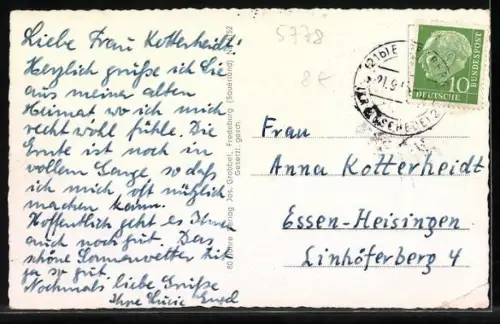 Liebe Frau Kotterheidt!
Herzlich grüße ich Sie
aus meiner alten
Heimat wo ich mich
recht wohl fühle. Die
Ernte ist noch in
vollem Gange, so daß
ich mich oft nützlich
machen kann.
Hoffentlich geht es Ihnen
auch noch gut. Das
schöne Sonnenwetter hilft
ja so gut.
Nochmals liebe Grüße
Ihre Lucie
5778
8€
Jos. Grobbel, Fredeburg (Sauerland)
Gesetzl. gesch.
10
DEUTSCHE
BUNDESPOST
Frau
Anna Kotterheidt
Essen-Heisingen
Linhöferberg 4